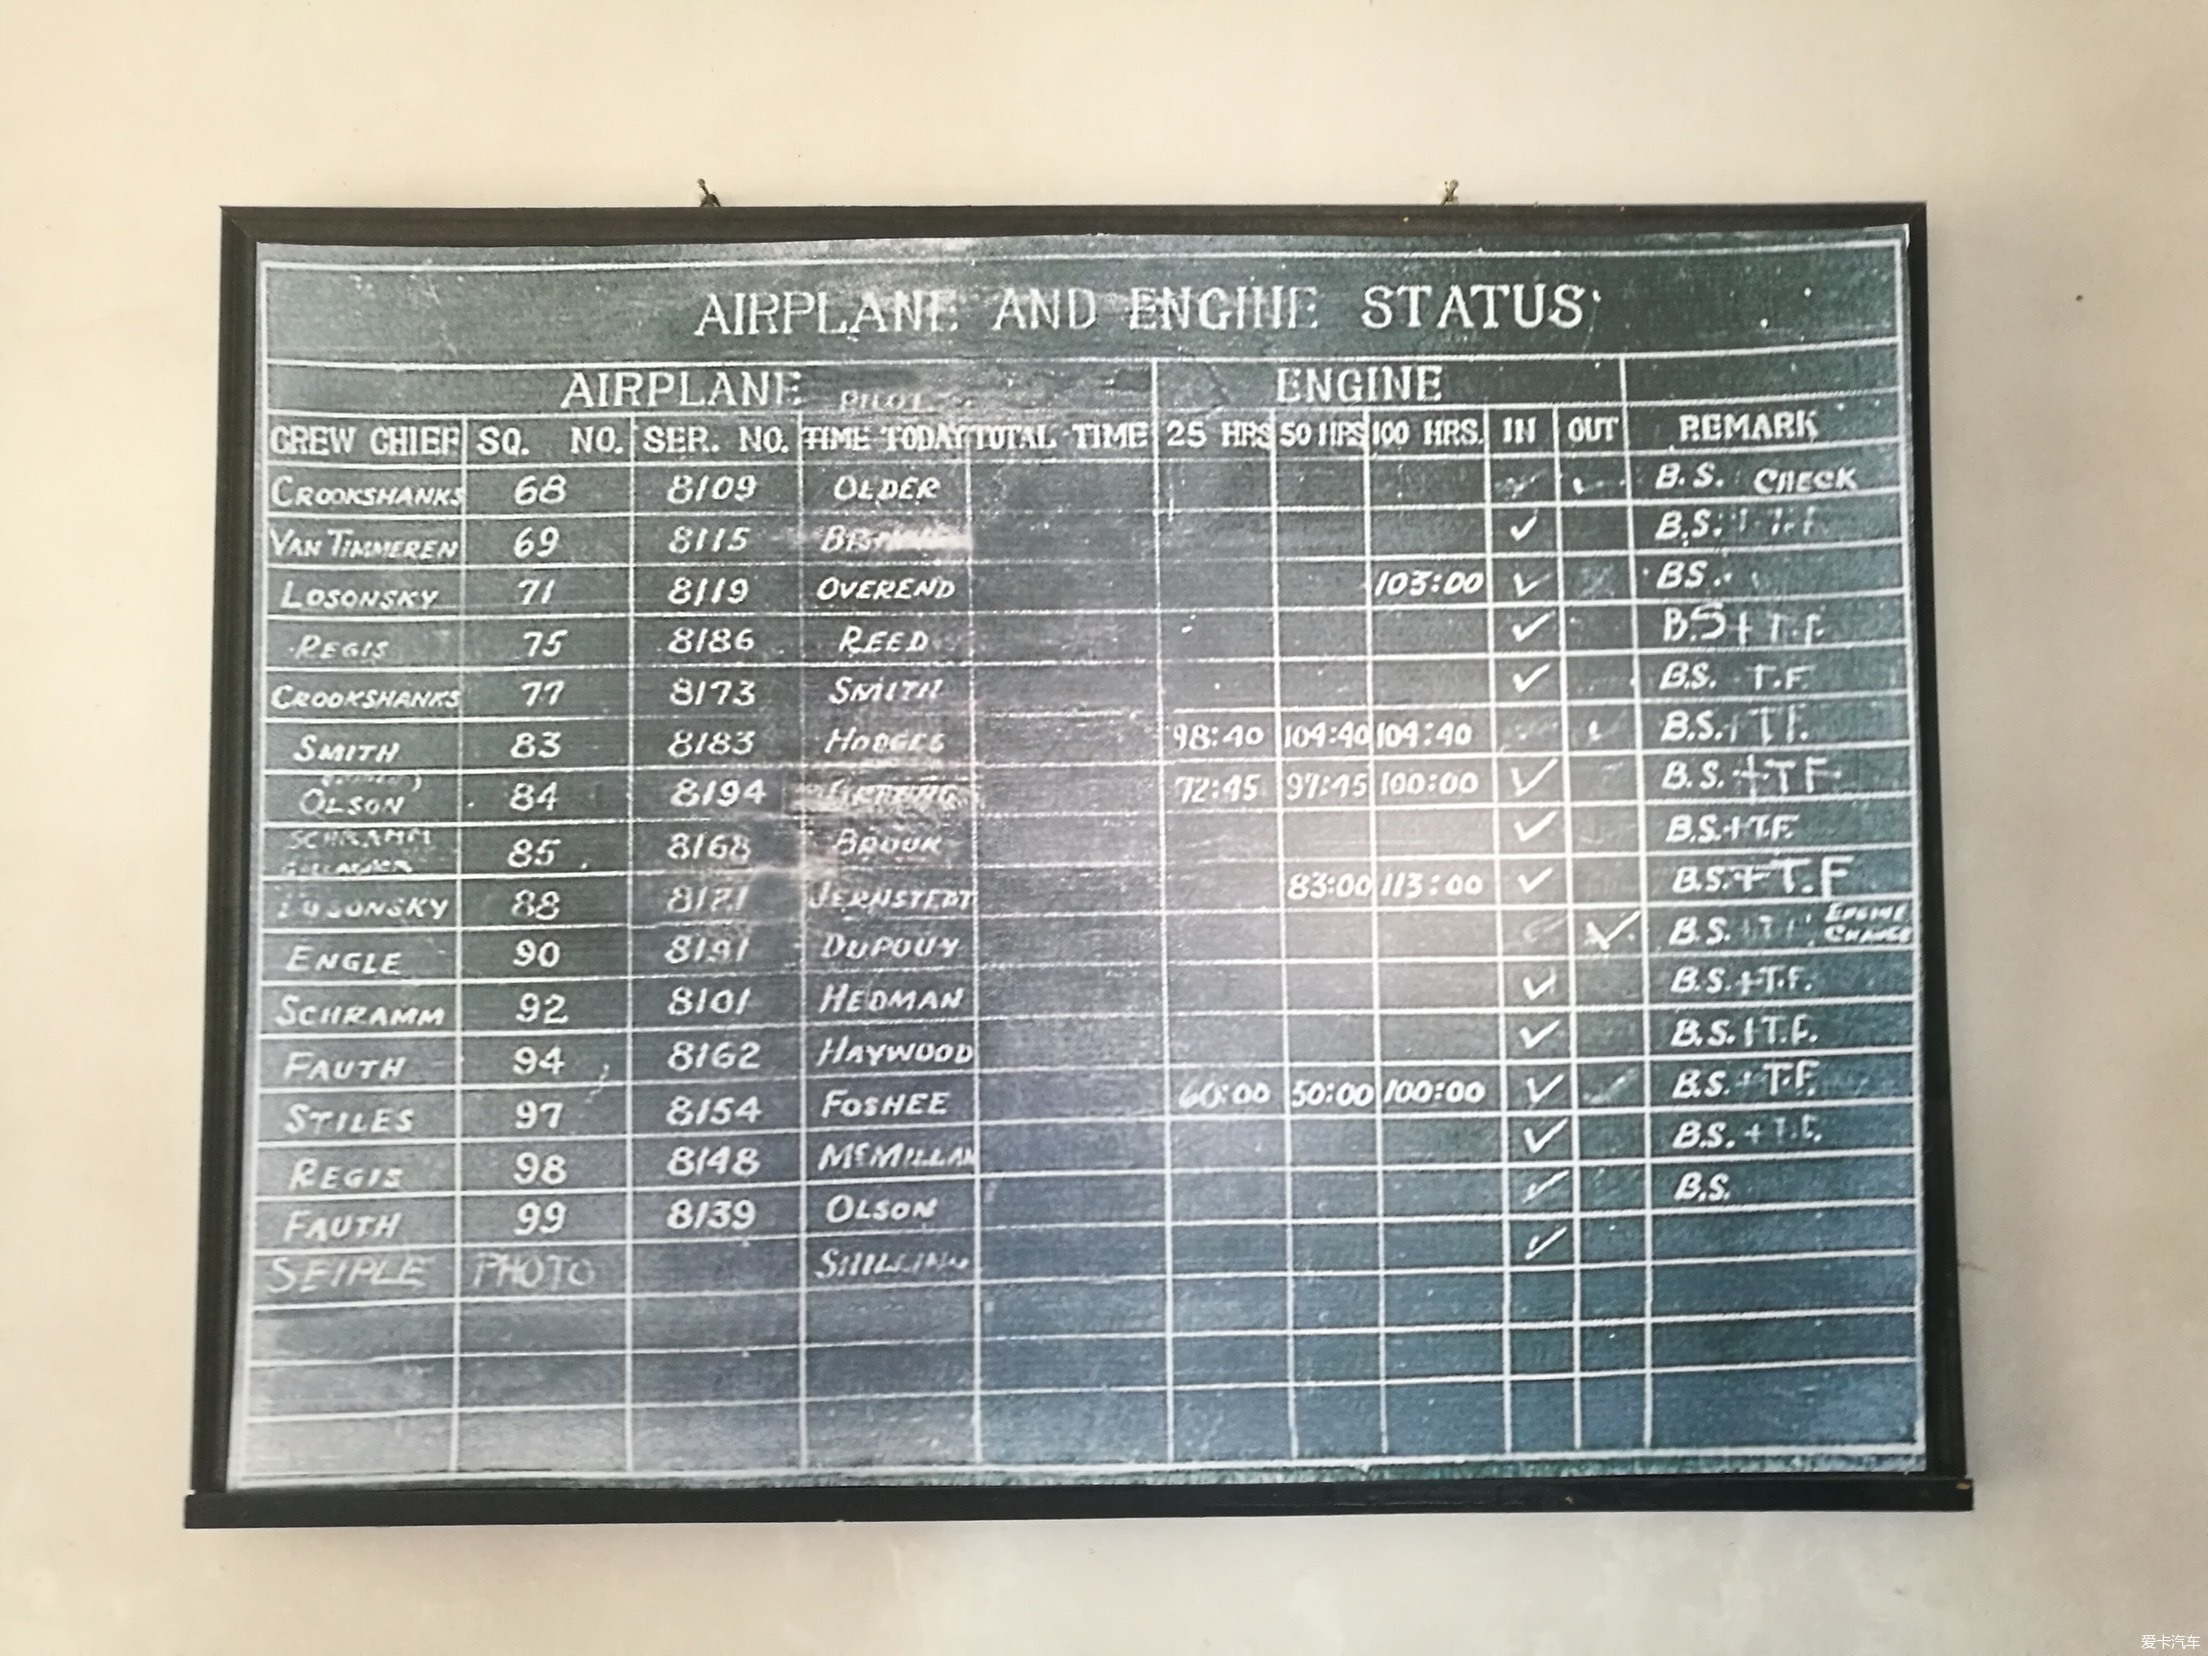 AIRPLANE AND ENGINE STATUS
AIRPLANE PILOT ENGINE
CREW CHIEF SQ. NO. SER. NO. TIME TODAY TOTAL TIME 25 HRS 50 HRS 100 HRS. IN OUT REMARK
CROOKSHANKS 68 8109 OLDER ✓ B.S. CHECK
VAN TIMMEREN 69 8115 ✓ B.S.
LOSONSKY 71 8119 OVEREND 103:00 ✓ BS.
REGIS 75 8186 REED ✓ B.S + T.F.
CROOKSHANKS 77 8173 SMITH ✓ B.S. T.F.
SMITH 83 8183 HODGES 98:40 104:40 104:40 B.S. + T.F.
OLSON 84 8194 72:45 97:45 100:00 ✓ B.S. + T.F.
SCHRAMM 85 8168 ✓ B.S. + T.F.
LOSONSKY 88 8121 JERNSTEDT 83:00 113:00 ✓ B.S. + T.F
ENGLE 90 8191 DUPOUY ✓ B.S. ENGINE CHANGE
SCHRAMM 92 8101 HEDMAN ✓ B.S. + T.F.
FAUTH 94 8162 HAYWOOD ✓ B.S. + T.F.
STILES 97 8154 FOSHEE 60:00 50:00 100:00 ✓ B.S. + T.F.
REGIS 98 8148 MCMILLAN ✓ B.S. + T.F.
FAUTH 99 8139 OLSON ✓ B.S.
SEIPLE PHOTO ✓
爱卡汽车